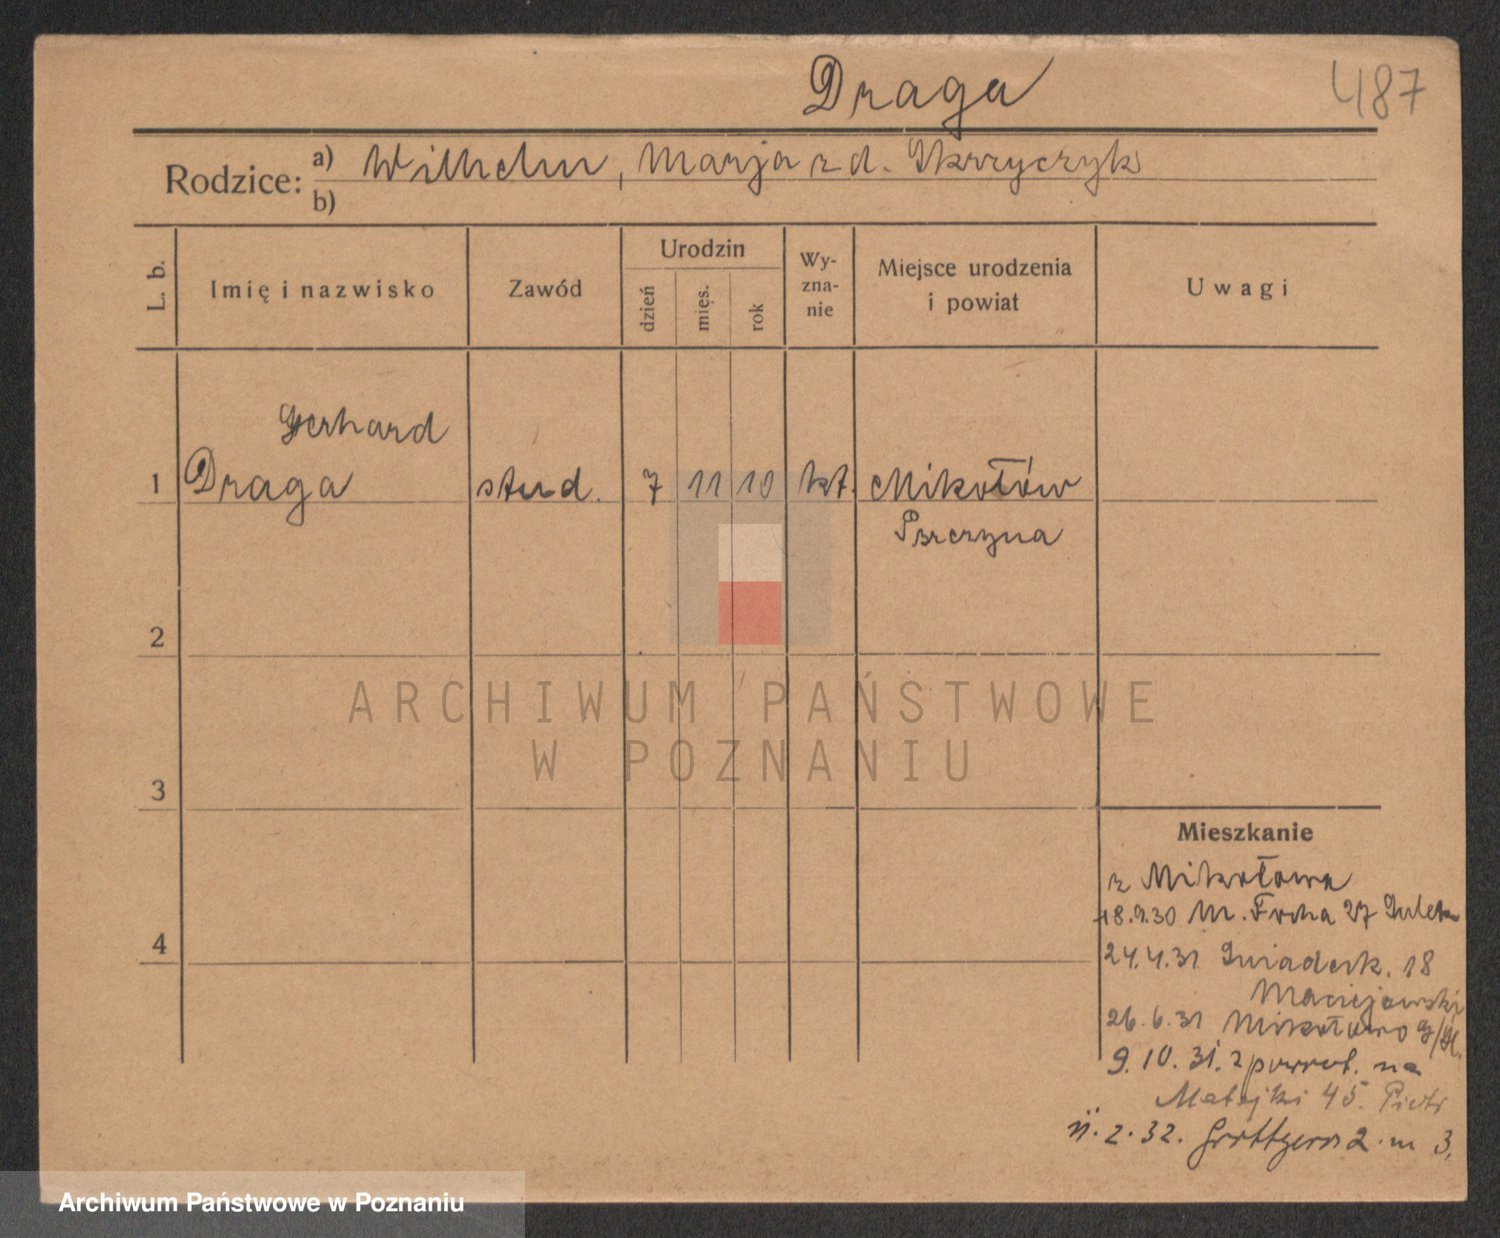 Draga
487
Rodzice: a) Wilhelm, Marja z d. Skrzyczyk
b)
L. b.
Imię i nazwisko
Zawód
Urodzin
dzień
mies.
rok
Wy-
zna-
nie
Miejsce urodzenia
i powiat
Uwagi
Gerhard
1 Draga stud. 7 11 10 kt. Mikołów
Pszczyna
2
3
4
ARCHIWUM PAŃSTWOWE
W POZNANIU
Mieszkanie
z Mikołowa
18.9.30 M. Focha 27
24.4.31 Śniadeck. 18
Maciejewski
26.6.31 Mikołowo g/Śl.
9.10.31. z powrot. na
Matejki 45. Piotr
11.2.32. Grottgera 2 m 3.
Archiwum Państwowe w Poznaniu